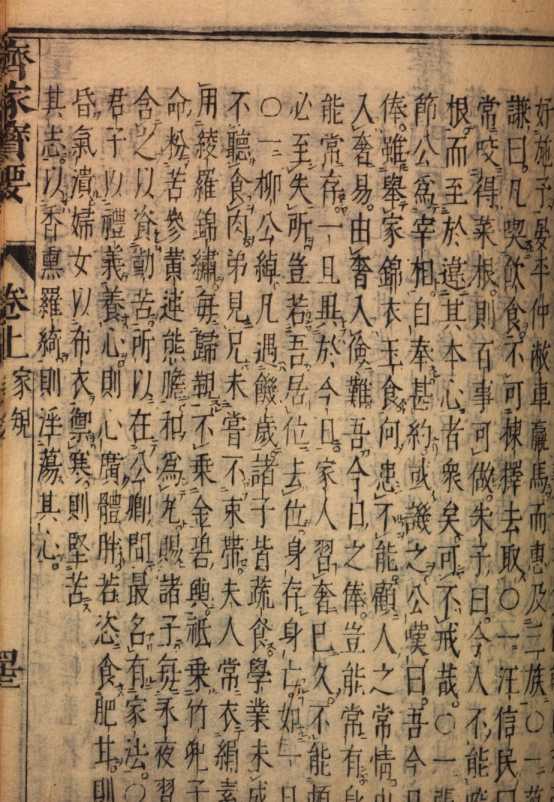 好施予晏平仲敝車羸馬而惠及三族〇一
謙曰凡喫飲食不可棟擇去取〇一汪信民曰
常咬得菜根則百事可做朱子曰今人不能咬
根而至於違其本心者衆矣可不戒哉〇一張
節公爲宰相自奉甚約或譏之公嘆曰吾今日
俸雖舉家錦衣玉食何患不能顧人之常情由
入奢易由奢入儉難吾今日之俸豈能常有身
能常存一旦異於今日家人習奢已久不能頓
必至失所豈若吾居位去位身存身亡如一日
〇一柳公綽凡遇饑歲諸子皆蔬食學業未成
不聽食肉弟見兄未嘗不束帶夫人常衣絹素
用綾羅錦繡每歸覲不乘金碧輿祇乘竹兜子
命粉苦參黄連熊膽和爲丸賜諸子每永夜習
含之以資勤苦所以在公卿間最名有家法〇
君子以禮義養心則心廣體胖若恣食肥甘則
昏氣潰婦女以布衣禦寒則堅苦
其志以香熏羅綺則淫蕩其心
齊家寶要 卷上 家規